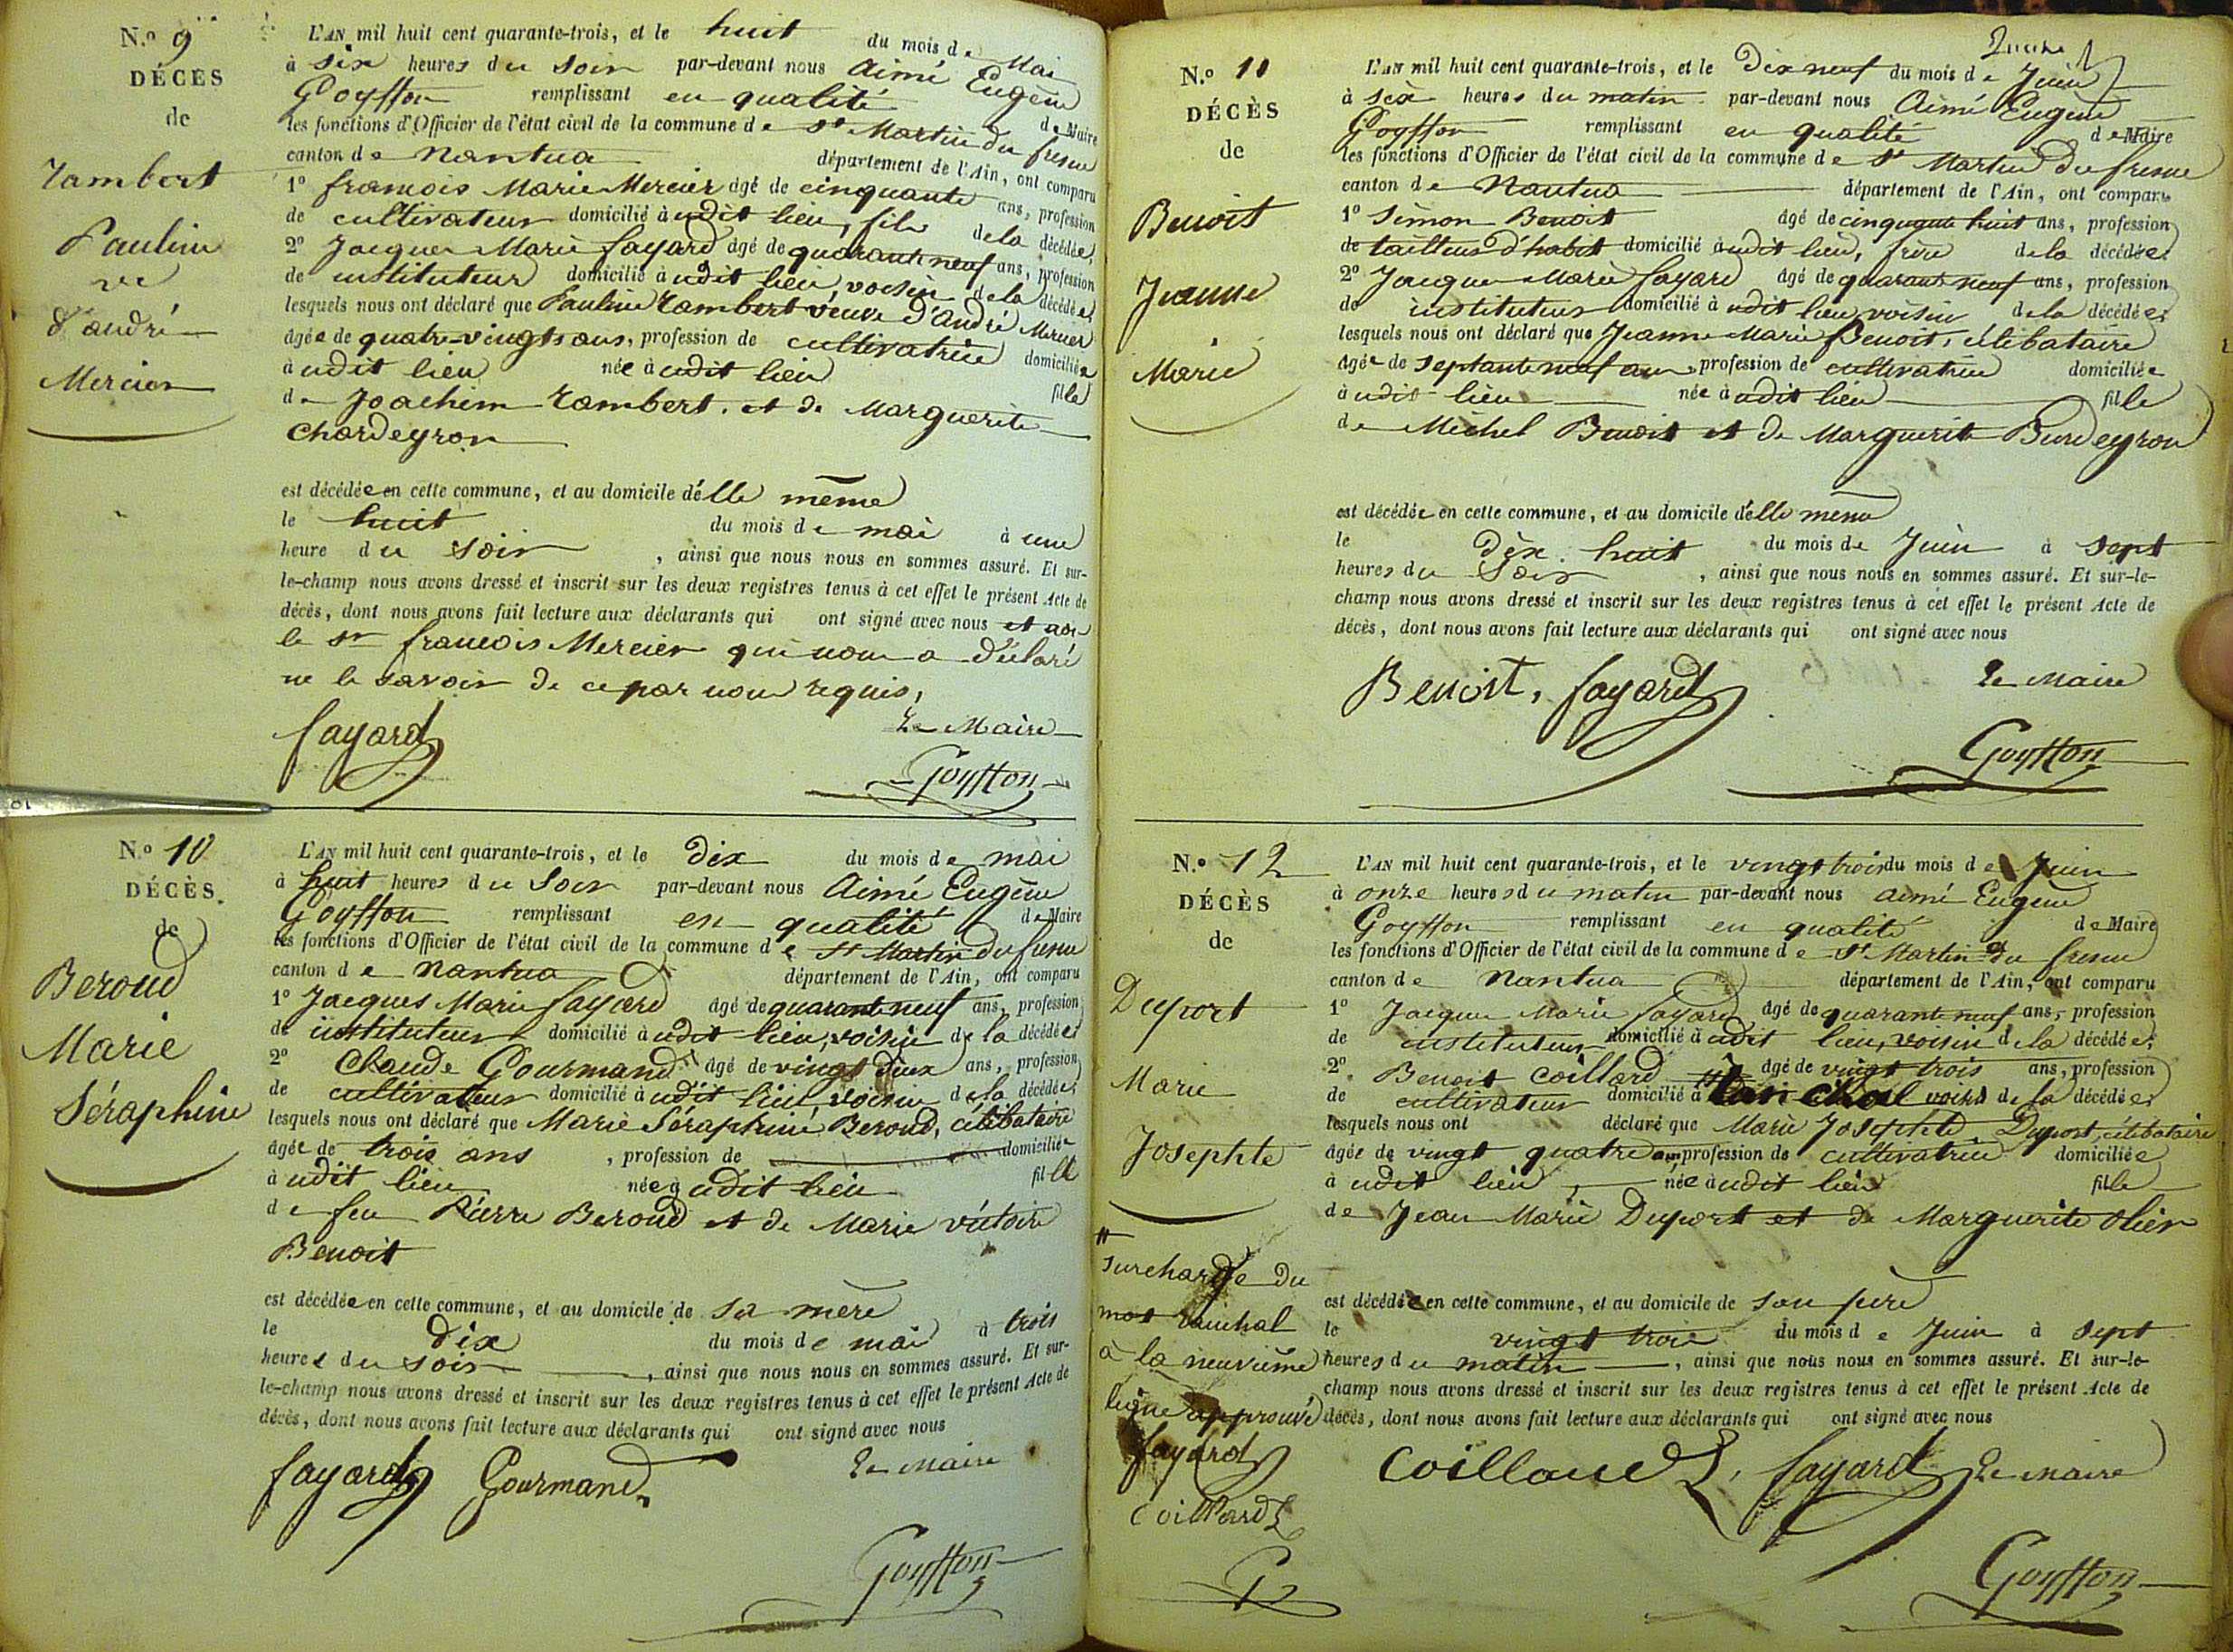 N.º 9
DÉCÈS
de
Tambert
Pauline
ve
d'andré
Mercier
L'AN mil huit cent quarante-trois, et le huit du mois de Mai
à six heures du soir par-devant nous Aimé Eugène
Goyffon remplissant en qualité de Maire
les fonctions d'Officier de l'état civil de la commune de St Martin du fresne
canton de Nantua département de l'Ain, ont comparu
1º françois Marie Mercier âgé de cinquante ans, profession
de cultivateur domicilié à udit lieu, fils de la décédée,
2º Jacques Marie fayard âgé de quarante neuf ans, profession
de instituteur domicilié à udit lieu voisin de la décédée,
lesquels nous ont déclaré que Pauline Tambert veuve d'André Mercier
âgée de quatre-vingts ans, profession de cultivatrice domiciliée
à udit lieu née à udit lieu fille
de Joachim Tambert, et de Marguerite
Chardeyron
est décédée en cette commune, et au domicile d'elle même
le huit du mois de mai à une
heure du soir, ainsi que nous nous en sommes assuré. Et sur-
le-champ nous avons dressé et inscrit sur les deux registres tenus à cet effet le présent Acte de
décès, dont nous avons fait lecture aux déclarants qui ont signé avec nous et non
le sr françois Mercier qui nous a déclaré
ne le savoir de ce par nous requis,
fayard Le Maire
Goyffon
N.º 10
DÉCÈS.
de
Beroud
Marie
Séraphine
L'AN mil huit cent quarante-trois, et le dix du mois de mai
à huit heures du soir par-devant nous Aimé Eugène
Goyffon remplissant en qualité de Maire
les fonctions d'Officier de l'état civil de la commune de St Martin du fresne
canton de Nantua département de l'Ain, ont comparu
1º Jacques Marie fayard âgé de quarante neuf ans, profession
de instituteur domicilié à udit lieu, voisin de la décédée,
2º Claude Gourmand âgé de vingt deux ans, profession
de cultivateur domicilié à udit lieu voisin de la décédée,
lesquels nous ont déclaré que Marie Séraphine Beroud, célibataire
âgée de trois ans, profession de domiciliée
à udit lieu née à udit lieu fille
de feu Pierre Beroud et de Marie victoire
Benoit
est décédée en cette commune, et au domicile de sa mère
le dix du mois de mai à trois
heures du soir, ainsi que nous nous en sommes assuré. Et sur-
le-champ nous avons dressé et inscrit sur les deux registres tenus à cet effet le présent Acte de
décès, dont nous avons fait lecture aux déclarants qui ont signé avec nous
fayard Gourmand Le Maire
Goyffon
N.º 11
DÉCÈS
de
Benoit
Jeanne
Marie
L'AN mil huit cent quarante-trois, et le Dix neuf du mois de Juin
à six heures du matin par-devant nous Aimé Eugène
Goyffon remplissant en qualité de Maire
les fonctions d'Officier de l'état civil de la commune de St Martin du fresne
canton de Nantua département de l'Ain, ont comparu
1º Simon Benoit âgé de cinquante huit ans, profession
de tailleur d'habit domicilié à udit lieu, frère de la décédée,
2º Jacques Marie fayard âgé de quarante neuf ans, profession
de instituteur domicilié à udit lieu voisin de la décédée,
lesquels nous ont déclaré que Jeanne Marie Benoit, célibataire
âgée de septante neuf ans, profession de cultivatrice domiciliée
à udit lieu née à udit lieu fille
de Michel Benoit et de Marguerite Burdeyron
est décédée en cette commune, et au domicile d'elle même
le dix huit du mois de Juin à sept
heures du soir, ainsi que nous nous en sommes assuré. Et sur-le-
champ nous avons dressé et inscrit sur les deux registres tenus à cet effet le présent Acte de
décès, dont nous avons fait lecture aux déclarants qui ont signé avec nous
Benoit, fayard Le Maire
Goyffon
N.º 12
DÉCÈS
de
Duport
Marie
Josephte
#
surcharge du
mot Vanchal
à la neuvième
ligne approuvé
fayard
Coillard
G
L'AN mil huit cent quarante-trois, et le vingt trois du mois de Juin
à onze heures du matin par-devant nous aimé Eugène
Goyffon remplissant en qualité de Maire
les fonctions d'Officier de l'état civil de la commune de St Martin du fresne
canton de Nantua département de l'Ain, ont comparu
1º Jacques Marie fayard âgé de quarante neuf ans, profession
de instituteur domicilié à udit lieu, voisin de la décédée,
2º. Benoit Coillard âgé de vingt trois ans, profession
de cultivateur domicilié à # Vanchal voisin de la décédée,
lesquels nous ont déclaré que Marie Josephte Duport, célibataire
âgée de vingt quatre ans profession de cultivatrice domiciliée
à udit lieu, née à udit lieu fille
de Jean Marie Duport et de Marguerite Olier
est décédée en cette commune, et au domicile de son père
le vingt trois du mois de Juin à sept
heures du matin, ainsi que nous nous en sommes assuré. Et sur-le-
champ nous avons dressé et inscrit sur les deux registres tenus à cet effet le présent Acte de
décès, dont nous avons fait lecture aux déclarants qui ont signé avec nous
Coillard, fayard Le Maire
Goyffon